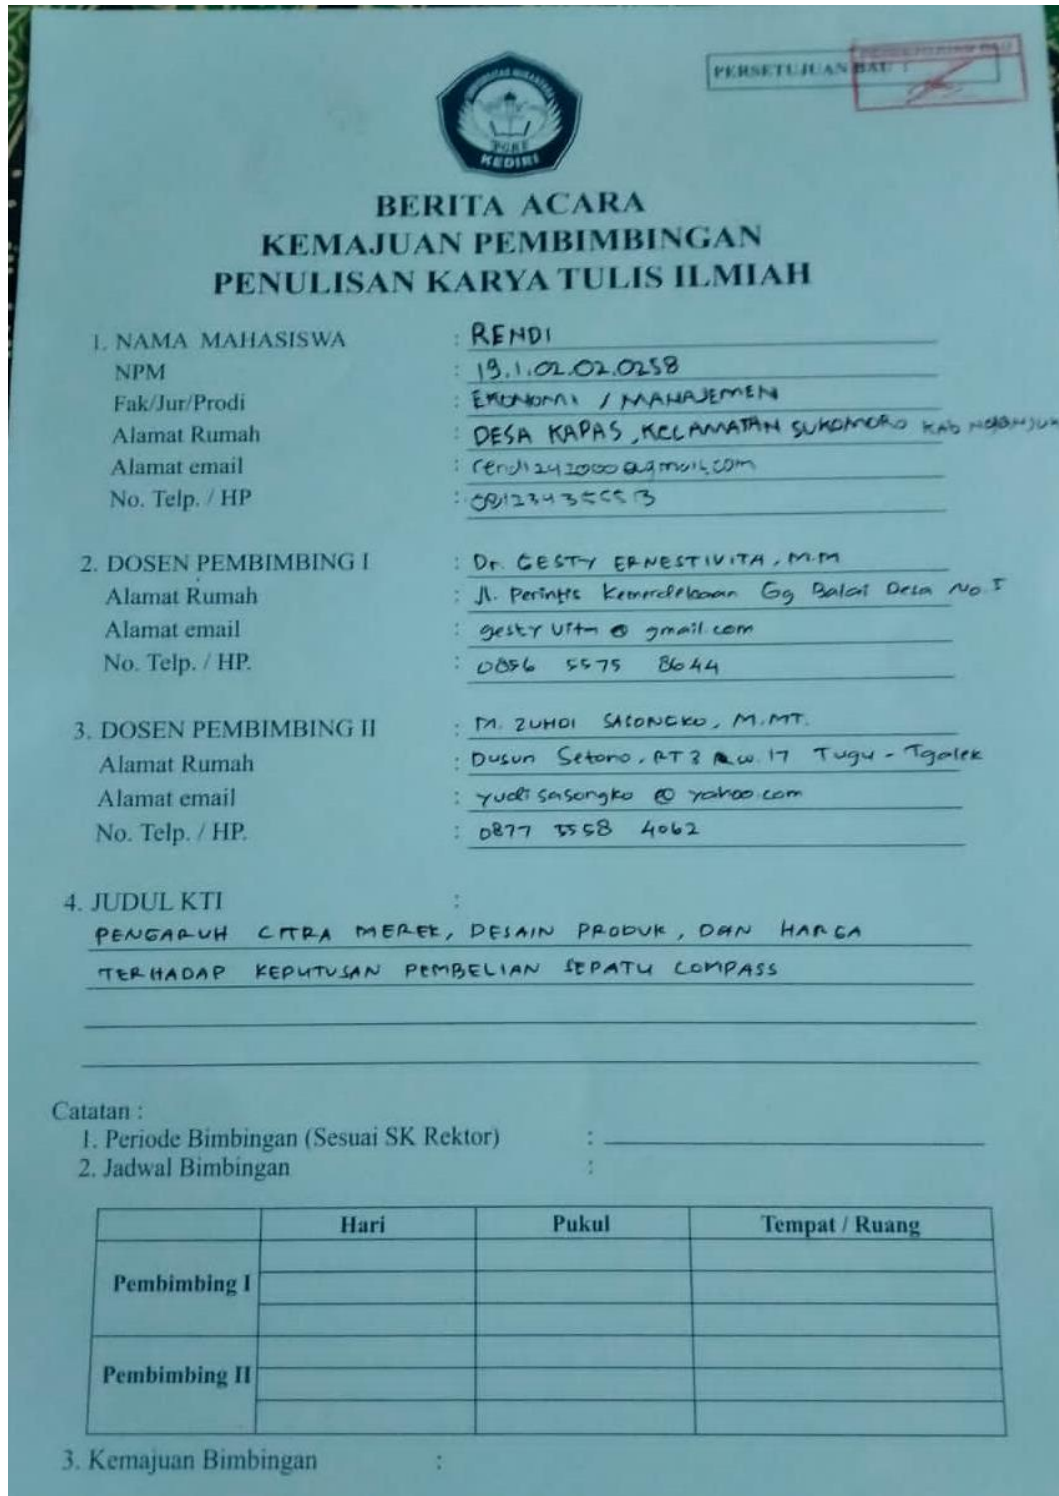 PERSETUJUAN BAU :
UNIVERSITAS NUSANTARA
PGRI
KEDIRI
BERITA ACARA
KEMAJUAN PEMBIMBINGAN
PENULISAN KARYA TULIS ILMIAH
1. NAMA MAHASISWA : RENDI
NPM : 19.1.02.02.0258
Fak/Jur/Prodi : EKONOMI / MANAJEMEN
Alamat Rumah : DESA KAPAS, KECAMATAN SUKOMORO KAB NGANJUK
Alamat email : rendi242000@gmail.com
No. Telp. / HP :
2. DOSEN PEMBIMBING I : Dr. GESTY ERNESTIVITA, M.M
Alamat Rumah : Jl. Perintis Kemerdekaan Gg Balai Desa No.
Alamat email : gesty vita @ gmail.com
No. Telp. / HP. : 0856 5575 8644
3. DOSEN PEMBIMBING II : M. ZUHDI SASONGKO, M.MT.
Alamat Rumah : Dusun Setono, RT 3 Rw. 17 Tugu - Tgalek
Alamat email : yudi sasongko @ yahoo.com
No. Telp. / HP. : 0877 3558 4062
4. JUDUL KTI :
PENGARUH CITRA MEREK, DESAIN PRODUK, DAN HARGA
TERHADAP KEPUTUSAN PEMBELIAN SEPATU COMPASS
Catatan :
1. Periode Bimbingan (Sesuai SK Rektor) :
2. Jadwal Bimbingan :
Hari Pukul Tempat / Ruang
Pembimbing I
Pembimbing II
3. Kemajuan Bimbingan :